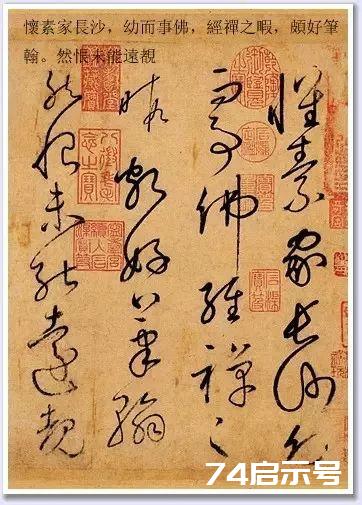 懷素家長沙，幼而事佛，經禪之暇，頗好筆
翰。然悵未能遠覩
懷素家長沙幼
而事佛經禪之
暇頗好筆翰
然恨未能遠覩
74启示号